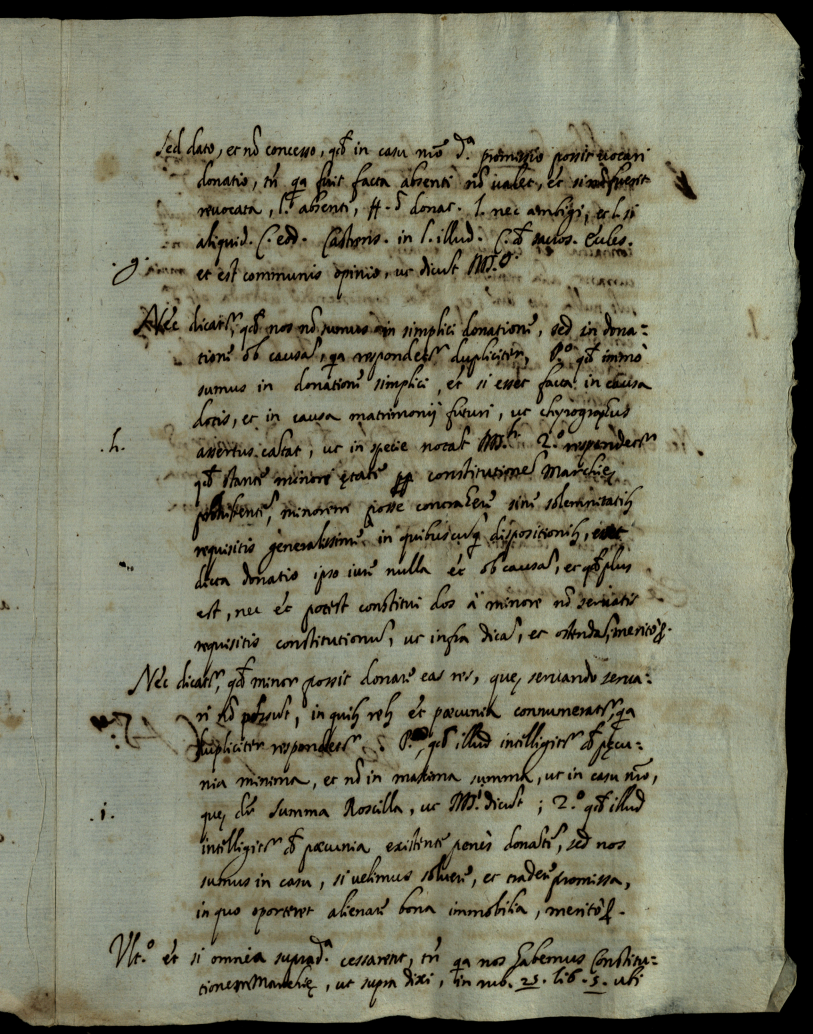 Sed dato, et nō concesso, qđ in casu nr̄o d.ª promissio possit vocari
donatio, tn̄ qa fuit facta absenti nō valet, et si
revocata, l. absenti, ff. d donat. l. nec ambigi, et l. si
aliquid. C. eod. Castrens. in l. illud. C. đ sacros. Eccles.
.g. et est communis opinio, ut dicūt
Nec dicatr, qđ nos nō sumus in simplici donationē, sed in dona=
tionē ob causā, qa respondetr dupliciter, P.º qđ immo
sumus in donationē simplici, et si esset facta in causa
dotis, et in causa matrimonij futuri, ut chyrographus
.h. assertus cantat, ut in specie notāt 2.º respondetr
qđ stante minori ętatē constitutionē Marchię
minorem posse contrahere, sinē solemnitatib
requisitis generalissimē in quibuscūq dispositionib,
dicta donatio ipso iure nulla ēt ob causā, et qđ plus
est, nec ēt potest constitui dos à minore nō servatis
requisitis constitutionū, ut infra dicā, et ostendā, merito
Nec dicatr, qđ minor possit donare eas res, quę servando serva=
ri nō possūt, in quib reb ēt pecunia connumeratr, qa
dupliciter respondetr P.º qđ illud intelligitr đ pecu=
nia minima, et nō in maxima summa, ut in casu nr̄o,
.i. quę summa ut dicūt; 2.º qđ illud
intelligitr đ pecunia existente penès donātē, sed nos
sumus in casu, si velimus solvere, et tradere promissa,
in quo oporteret alienare bona immobilia, merito
Ult.º ēt si omnia suprad.ª cessarent, tn̄ qa nos habemus Constitu=
tionem Marchię, ut supra dixi, in rub. 25. lib. 5. ubi